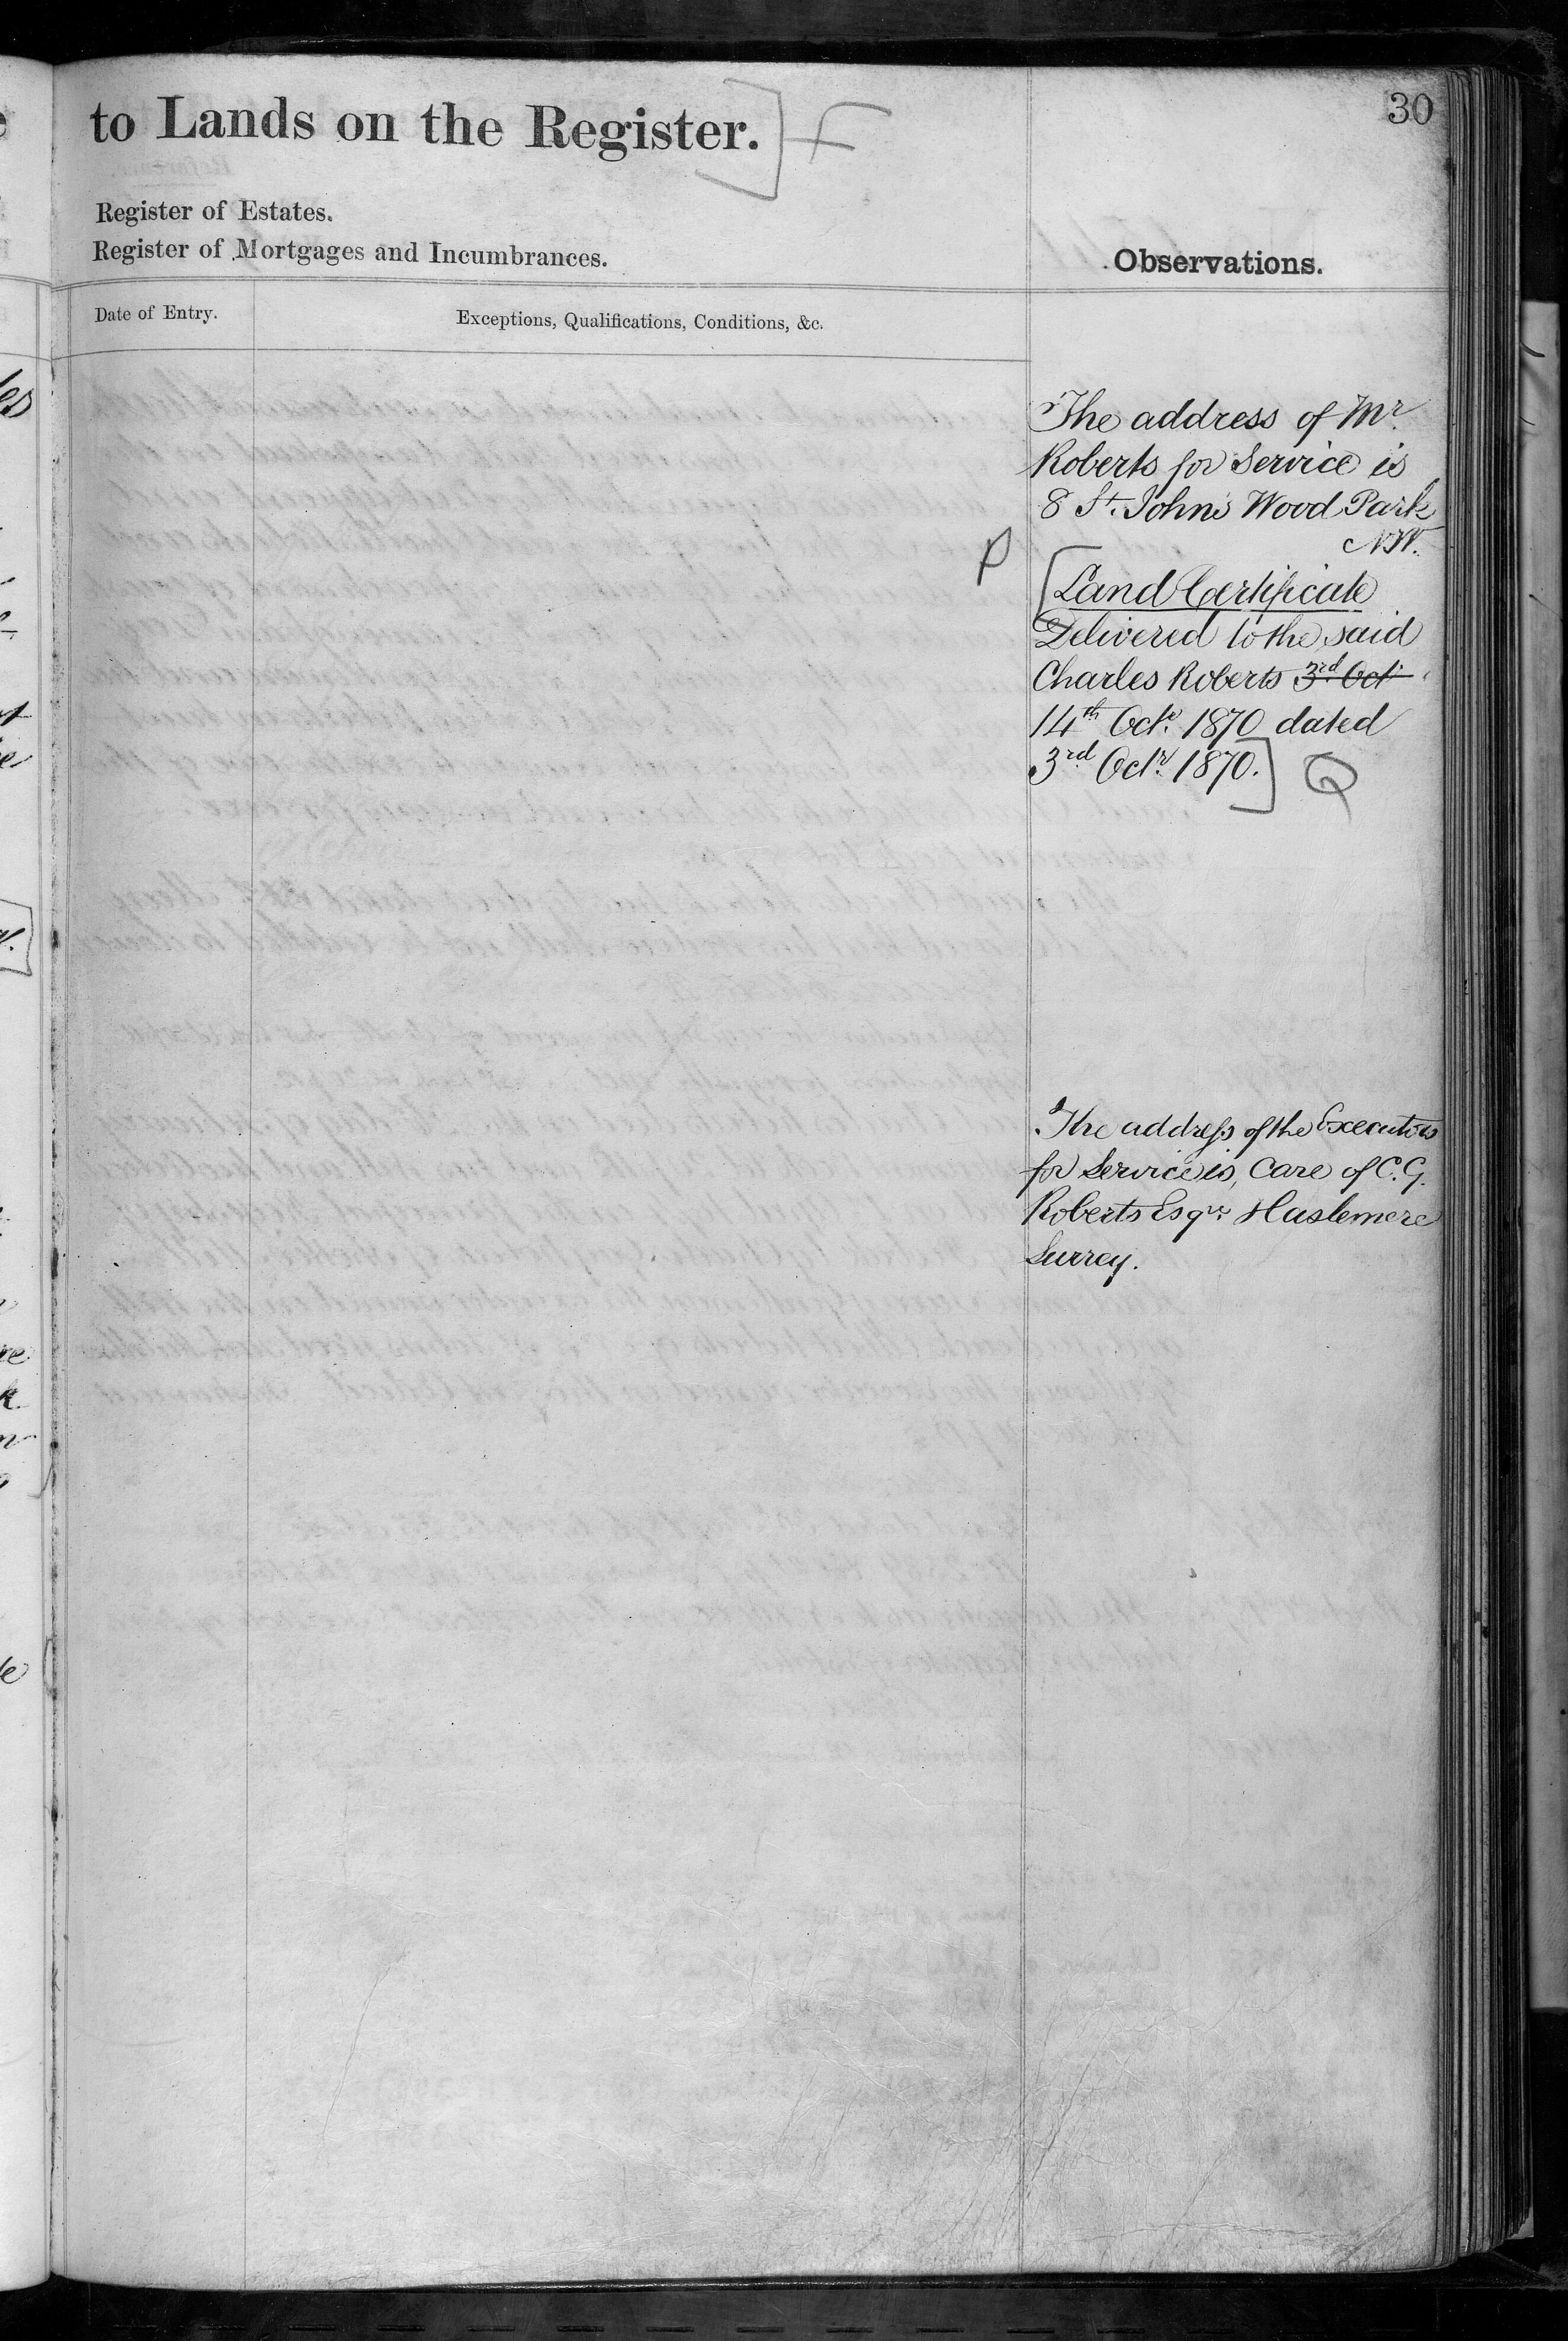 30
to Lands on the Register.
F
Register of Estates.
Register of Mortgages and Incumbrances.
Observations.
Date of Entry.
Exceptions, Qualifications, Conditions, &c.
The address of Mr.
Roberts for Service is
8 St. John's Wood Park
N.W.
P
Land Certificate
Delivered to the said
Charles Roberts 3rd Oct
14th Octr. 1870 dated
3rd Octr. 1870.
Q
The address of the Executors
for Service is, Care of C. G.
Roberts Esqre. Haslemere
Surrey.